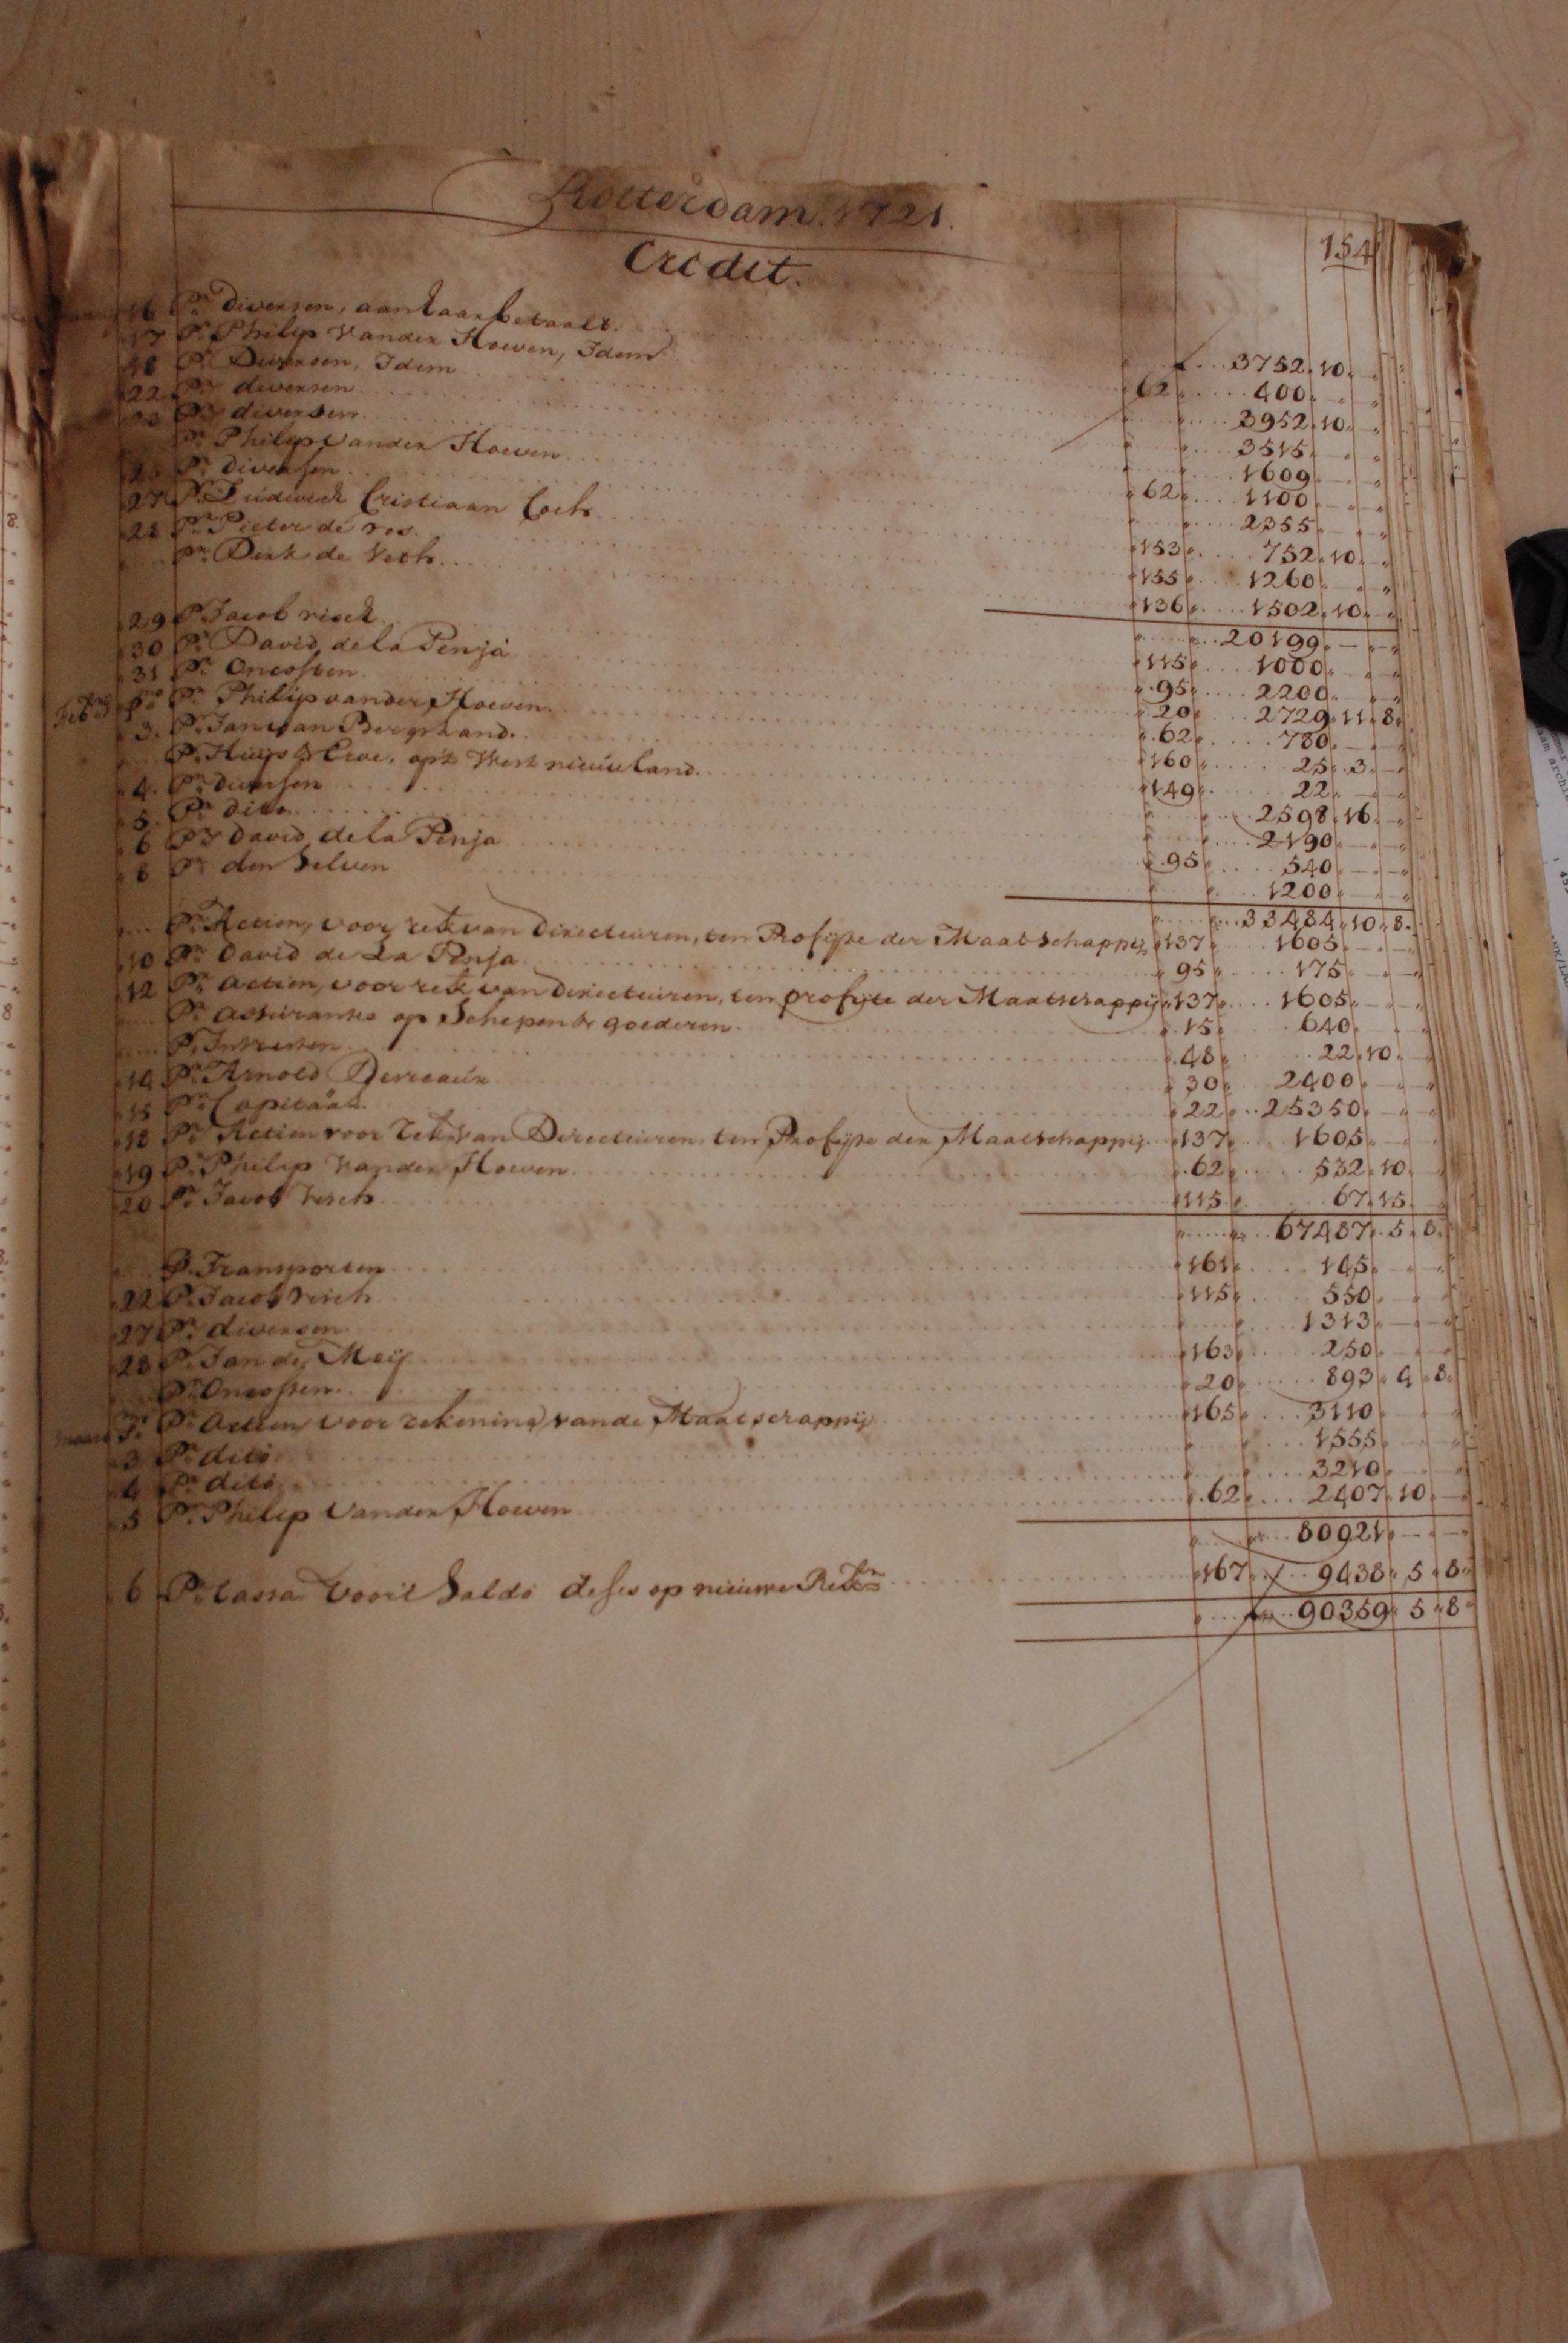 Rotterdam. 1721.
Credit.
154
16 Pr. diversen, aan haar betaalt. 3752. 10.
17 Pr. Philip Vander Hoeven, Idem 62 400.
18 Pr. Diversen, Idem 3952. 10.
22 Pr. diversen 3515.
Pr. diversen 1609.
Pr. Philip Vander Hoeven 62 1100.
25 Pr. diversen 2355.
27 Pr. Ludwich Cristiaan Coch 153 752. 10.
28 Pr. Pieter de vos 155 1260.
Pr. Dirk de Veth 136 1502. 10.
20199.
29 Pr. Jacob risch 115 1000.
30 Pr. David de la Penja 95 2200.
31 Pr. Oncosten 20 2729. 11. 8.
Feb. Pmo Pr. Philip vander Hoeven. 62 780.
3. Pr. Jan van Berghand. 160 25. 3.
Pr. Huijs & Erve, op't West nieuwland. 149 22.
4. Pr. diversen 2598. 16.
5. Pr. dito 2190.
6 Pr. David de la Penja 95 540.
8 Pr. den Selven 1200.
33484. 10. 8.
Pr. Actien, voor rek. van Directeuren, ten Profijte der Maatschappij 137 1605.
10 Pr. David de La Penja 95 175.
12 Pr. actien, voor rek. van Directeuren, ten profijte der Maatscrappij 137 1605.
Pr. assurantie op Schepen & goederen 15 640.
Pr. Intresten 48 22. 10.
14 Pr. Arnold Derreaux 30 2400.
15 Pr. Capitaal. 22 25350.
18 Pr. Actien voor rek. van Directeuren ten Profijte der Maatschappij 137 1605.
19 Pr. Philip Vander Hoeven 62 532. 10.
20 Pr. Jacob Visch 115 67. 15.
67487. 5. 8.
Pr. Transporten 161 145.
22 Pr. Jacob risch 115 550.
27 Pr. diversen 1313.
28 Pr. Jan de Meij 163 250.
Pr. Oncosten 20 893. 4. 8.
Pmo Pr. Actien, voor rekening vande Maatscrappij 165 3110.
3 Pr. dito 1555.
4 Pr. dito 3210.
5 Pr. Philip Vander Hoeven 62 2407. 10.
80921.
6 Pr. Cassa voor't Saldo deses op nieuwe Rek. 167 9438. 5. 8.
90359. 5. 8.